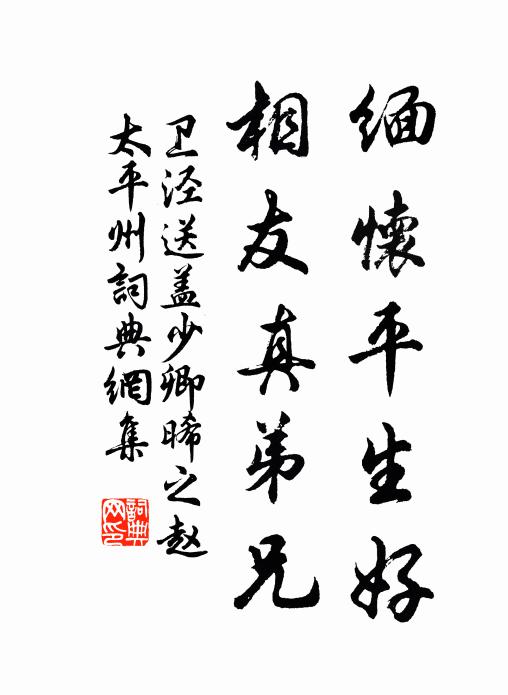 缅懷平生好
相友真弟兄
卫泾送盖少卿晞之赵
太平州詞典網集
詞典
网印